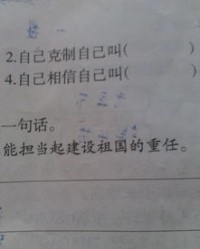 2.自己克制自己叫(          )
4.自己相信自己叫(          )
一句话。
能担当起建设祖国的重任。